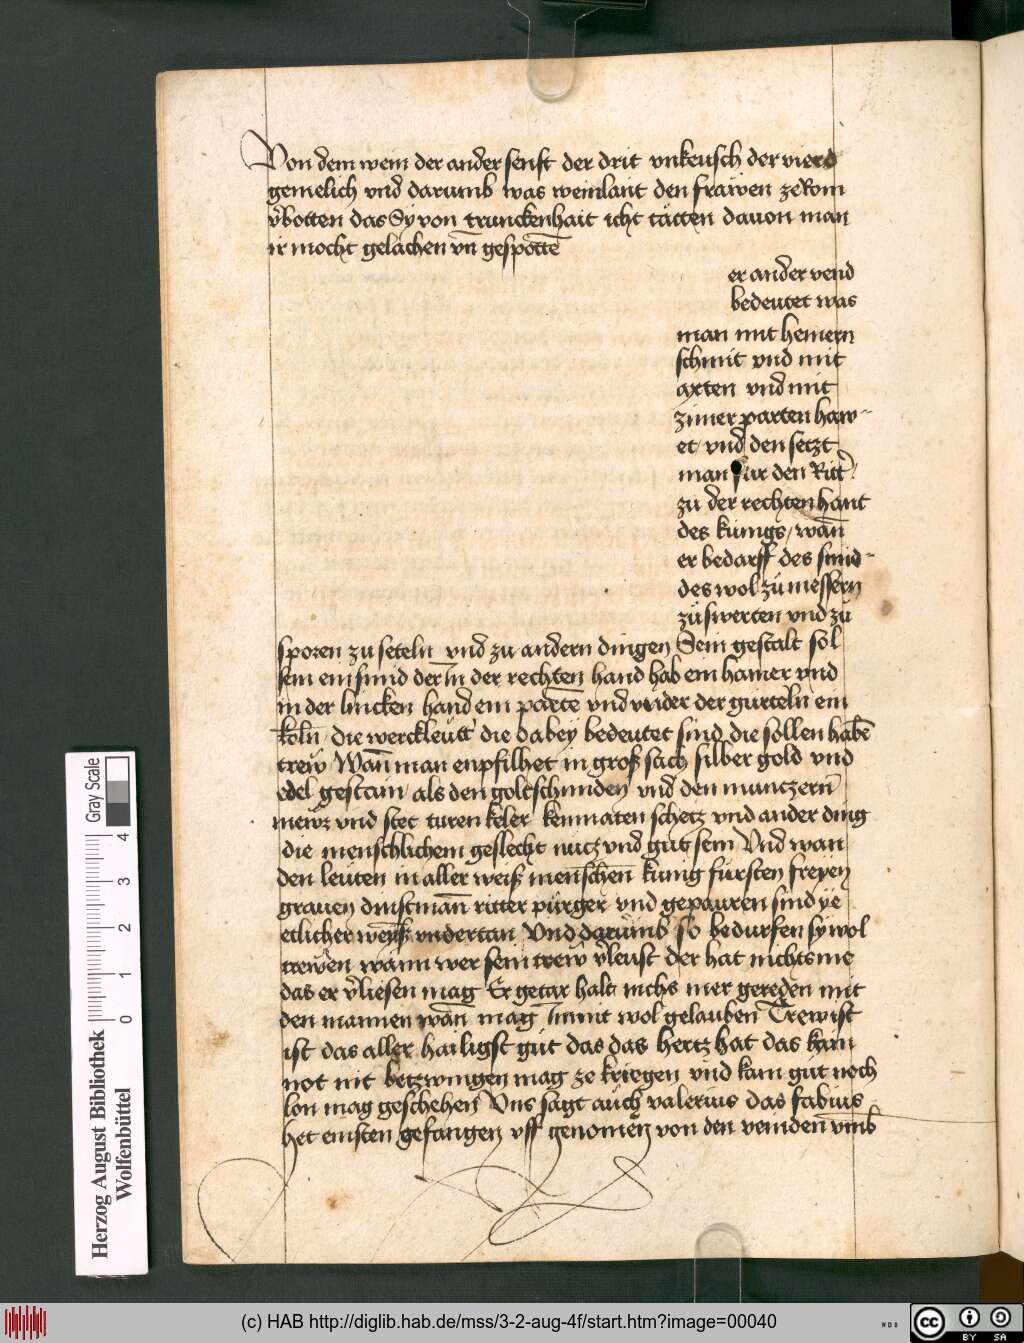 Von dem wein der ander senft der drit vnkeusch der vierd
gemelich vnd darumb was weinlant den frawen ze Rom
v̾botten das Sy von trunckenhait icht tätten dauon man
ir mocht gelachen vn̄ gespotte̅
er ander vend
bedeutet was
man mit hemern
schmit vnd mit
axten vnd mit
zimer parten haw-
et vnd den setzt
man für den Ritt̾
zu der rechten hant
des kunigs / wan̅
er bedarff des smid-
des wol zu messern
zu swerten vnd zu
sporen zu seteln vnd zu andern dingen Sein gestalt sol
sein ein smid der In der rechten hand hab ein hamer vnd
in der lincken hand ein parte̅ vnd vnder der gurteln ein
keln̅ / die werckleutt die dabey bedeutet sind die sollen habe̅
trew Wan̅ man enpfilhet in groß sach silber gold vnd
edel gestain / als den goltschmiden vnd den munczern
mewr vnd stet turen keler kemnaten schetz vnd ander ding
die menschlichem geslecht nucz vnd gut sein Vnd wan
den leuten in aller weiß menschen kunig fürsten freyen
grauen dinstman̅ ritter pürger vnd gepauren sind ye
etlicher weyß vndertan Vnd darumb so bedurfen sy wol
trewen wann wer sein trew v̾leust der hat nichts me
das er v̾liesen mag Er getar halt nichs mer gereden mit
den mannen wan̅ mag Im nit wol gelauben Trew ist
ist das aller hailigst gut das das hertz hat das kain
not nit betzwingen mag ze kriegen vnd kain gut noch
lon mag geschehen Vns sagt auch valerius das fabius
het einsten gefangen vff genomen von den veinden vmb
Herzog August Bibliothek
Wolfenbüttel
Gray Scale
0 1 2 3 4
(c) HAB http://diglib.hab.de/mss/3-2-aug-4f/start.htm?image=00040
WDB
cc BY SA